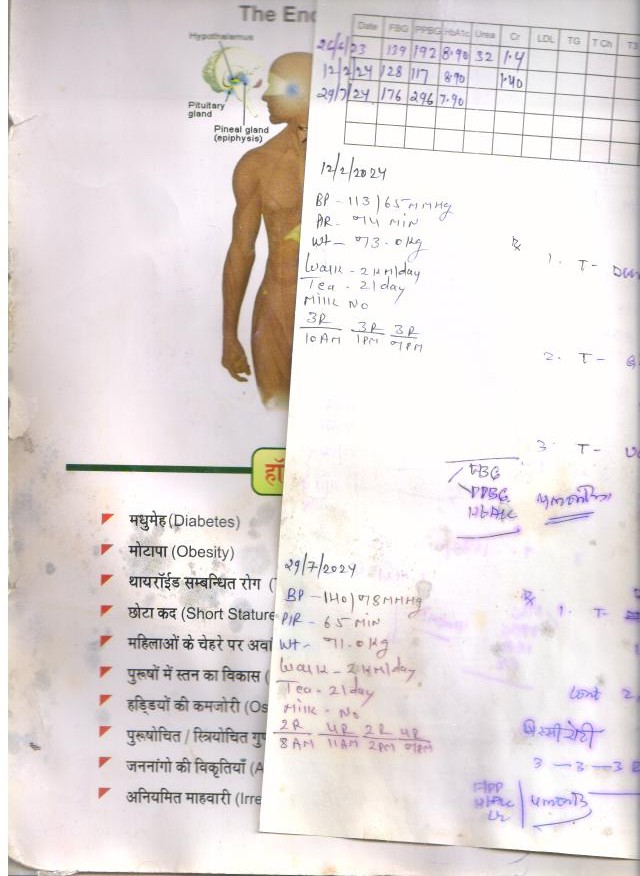 The End
Hypothalamus
Pituitary
gland
Pineal gland
(epiphysis)
Date FBG PPBG HbA1c Urea Cr LDL TG T Ch T3
26/6/23 139 192 8.90 32 1.4
12/2/24 128 117 8.90 1.40
29/7/24 176 296 7.90
12/2/2024
BP - 113/65 mmHg
PR - 74 MIN
Wt - 73.0 kg
Walk - 2 KM/day
Tea - 2/day
Milk No
3R 3R 3R
10AM 1PM 9PM
Rx
1. T-
2. T-
3. T-
FBG
PPBG
HbA1c
हॉ
मधुमेह (Diabetes)
मोटापा (Obesity)
थायरॉईड सम्बन्धित रोग (
छोटा कद (Short Stature
महिलाओं के चेहरे पर अवा
पुरूषों में स्तन का विकास (
हड्डियों की कमजोरी (Os
पुरूषोचित / स्त्रियोचित गुण
जननांगो की विकृतियाँ (A
अनियमित माहवारी (Irre
29/7/2024
BP - 140/78 mmHg
P/R - 65 MIN
Wt - 71.0 kg
Walk - 2 KM/day
Tea - 2/day
Milk - No
2R 4R 2R 4R
8AM 11AM 2PM 9PM
Rx
1. T-
Cont 2
3 - 3 - 3
HbA1c